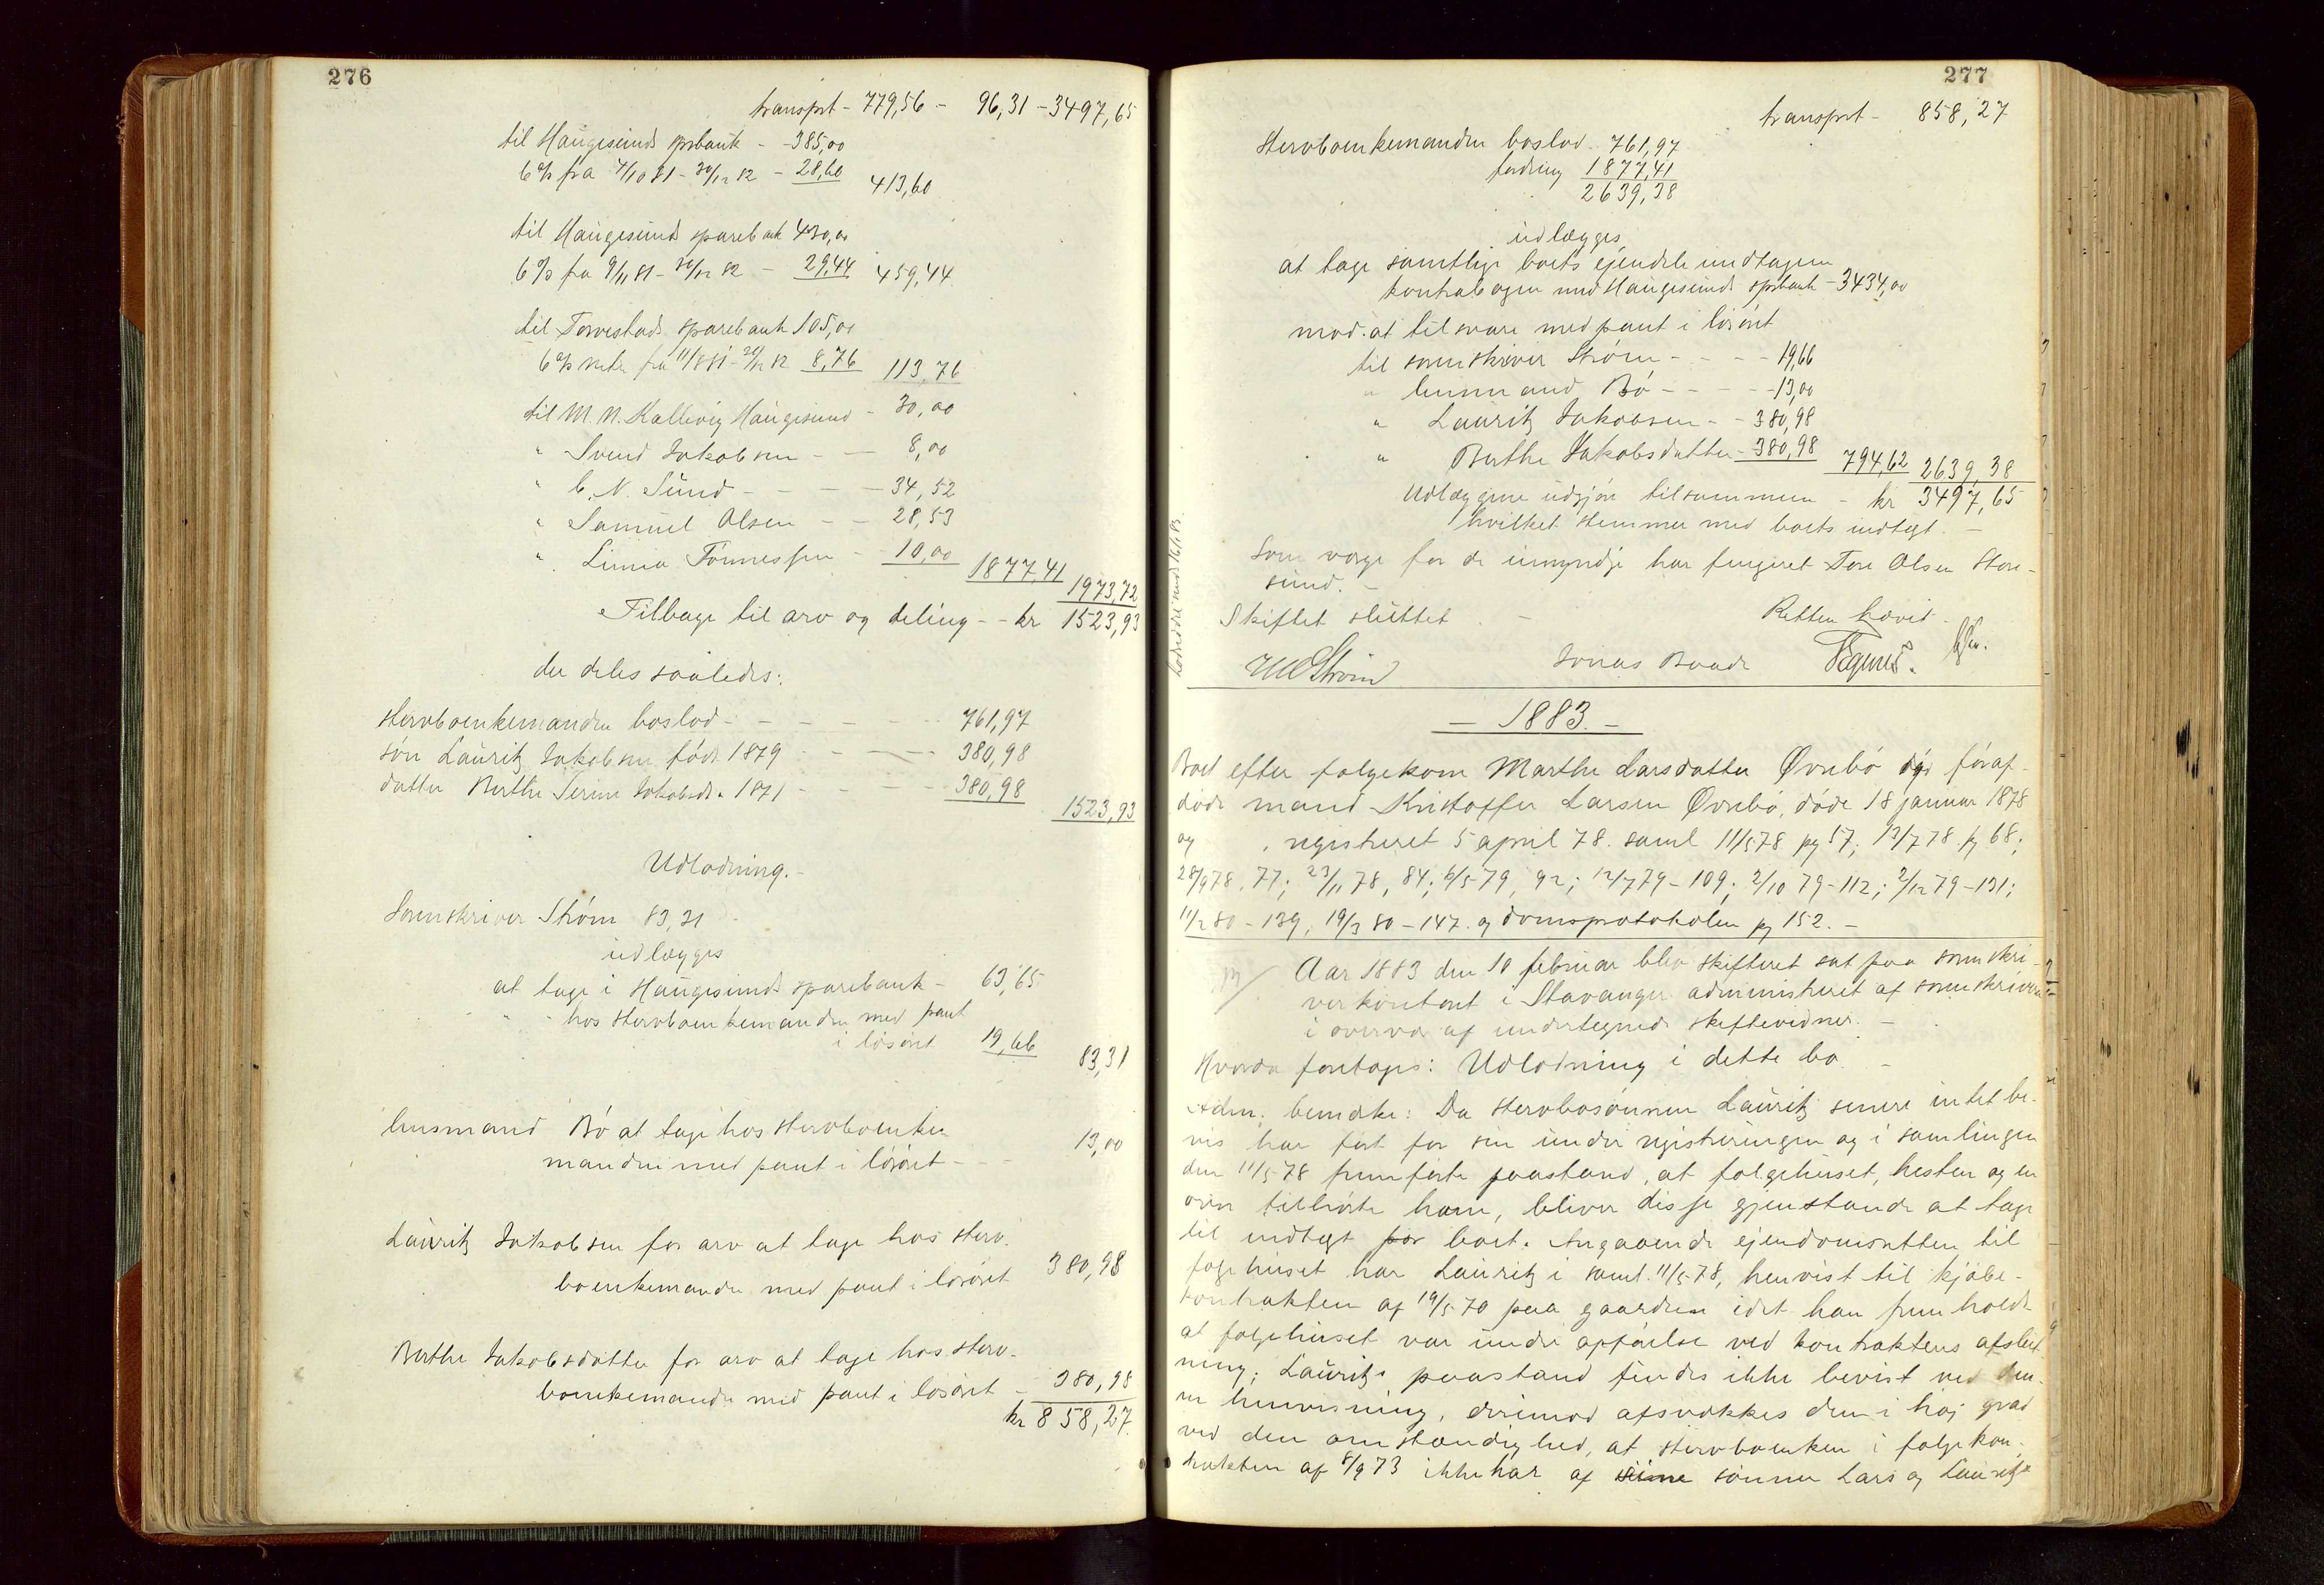 276
transprt - 779,56 - 96,31 - 3497,65
til Haugesunds sprbank - - 385,00
6 % fra 4/10 81 - 30/12 82 - 28,60 413,60
til Haugesunds sparebank 430,00
6 % fra 9/11 81 - 30/12 82 - 29,44 459,44
til Torvestads sparebank 105,00
6 % renter fra 11/8 81 - 30/12 82 8,76 113,76
til M. N. Kallevig Haugesund - 30,00
" Svend Jakobsen - - 8,00
" C. N. Sund - - - - 34,52
" Samuel Olsen - - 28,53
" Linia Tönnessen - - 10,00 1877,41
1973,72
Tilbage til arv og deling - - kr 1523,93
der deles saaledes:
stervboenkemanden boslod - - - - - 761,97
sön Lauritz Jakobsen född 1879 - - - - 380,98
datter Berthe Serine Jakobsd. " 1871 - - - - 380,98
1523,93
Udlodning. -
Sorenskriver Ström 83,31
udlægges
at tage i Haugesunds sparebank - 63,65
" " hos stervboenkemanden med pant
i lösöret 19,66
83,31
lensmand Bö at tage hos stervboenke-
manden med pant i lösöret - - - 13,00
Lauritz Jakobsen for arv at tage hos sterv-
boenkemanden med pant i lösöret 380,98
Berthe Jakobsdatter for arv at tage hos sterv-
boenkemanden med pant i lösöret - 380,98
kr 858,27.
277
transprt - 858,27
Stervboenkemanden boslod - 761,97
fordring 1877,41
2639,38
udlægges
at tage samtlige boets ejendele undtagen
kontrabogen med Haugesunds sprbank - 3434,00
mod at tilsvare med pant i lösöret
til sorenskriver Ström - - - - 19,66
" lensmand Bö - - - - 13,00
" Lauritz Jakobsen - - 380,98
" Berthe Jakobsdatter - 380,98 794,62 2639,38
Udlæggene udgjör tilsammen - kr 3497,65
hvilket stemmer med boets indtægt. -
Som værge for de umyndige har fungeret Tore Olsen Store-
sund. -
Skiftet sluttet. - Retten hævet.
Ström Jonas Baade
- 1883. -
Boet efter folgekone Marthe Larsdatter Øvrebö og föraf-
döde mand Kristoffer Larsen Øvrebö, döde 18 januar 1878
og , registreret 5 april 78. saml 11/5 78 pg 57; 13/7 78. pg 68;
28/9 78, 77; 23/11 78, 84; 6/5 79, 92; 12/7 79 - 109; 2/10 79 - 112; 2/12 79 - 131;
11/2 80 - 139, 19/3 80 - 147. og domsprotokolen pg 152. -
Aar 1883 den 10 februar blev skifteret sat paa sorenskri-
verkontoret i Stavanger administreret af sorenskriveren
i overvær af undertegnede skiftevidner. -
Hvorda foretages: Udlodning i dette bo. -
Adm. bemærke: Da stervbosönnen Lauritz senere intet be-
vis har fört for sin under registreringen og i samlingen
den 11/5 78 fremförte paastand, at folgehuset, hesten og en
ovn tilhörte ham, bliver disse gjenstande at tage
til indtægt for boet. Angaaende ejendomsretten til
folgehuset har Lauritz i saml. 11/5 78, henvist til kjöbe-
kontrakten af 19/5 70 paa gaarden idet han fremholdt
at folgehuset var under opförelse ved kontraktens afslut-
ning; Lauritz's paastand findes ikke bevist ved den-
ne henvisning, derimod afsvækkes den i höj grad
ved den omstændighed, at stervboenken i folgekon-
trakten af 8/9 73 ikke har af sine sönner Lars og Lauritz